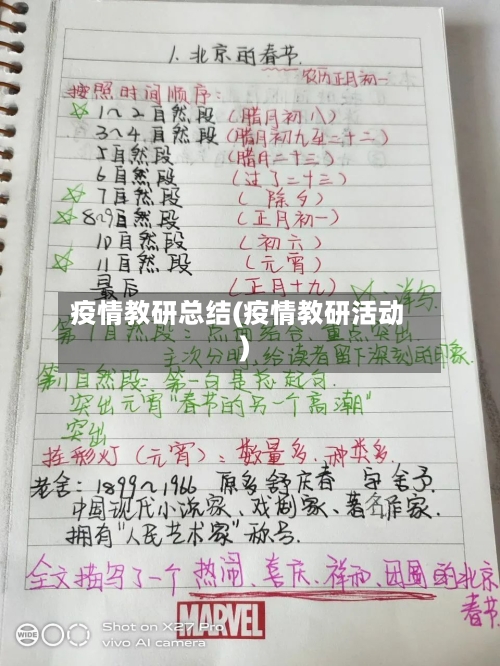 1.北京的春节
农历正月初一
按照时间顺序:
☆ 1~2自然段 (腊月初八)
3~4自然段 (腊月初九至二十二)
5自然段 (腊月二十三)
6自然段 (过了二十三)
☆ 7自然段 (除夕)
☆ 8~9自然段 (正月初一)
10自然段 (初六)
☆ 11自然段 (元宵)
最后 (正月十九)
☆:详写
疫情教研总结(疫情教研活动
)
第1自然段: 点面结合、重点突出
主次分明,给读者留下深刻的印象.
第11自然段: 第一句是总起句.
突出元宵"春节的另一个高潮"
突出
挂彩灯(元宵):数量多、种类多.
老舍:1899~1966 原名舒庆春 字舍予.
中国现代小说家、戏剧家、著名作家.
拥有"人民艺术家"称号.
全文描写了一个热闹、喜庆、祥和、团圆的北京
春节
MARVEL
WIDE
Shot on X27 Pro
vivo AI camera